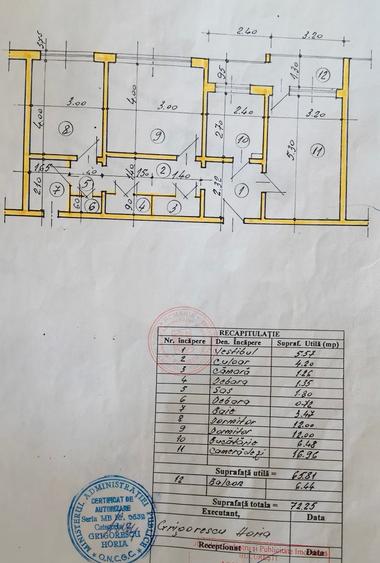 2.40 3.20
575 95 1.30 12
3.00 3.00 2.40 3.20
4.00 4.00 2.70 5.30
8 9 10 11
1.65 40 1.40 1.50 2 1.40 2.32 1
2.10 7 5 60 6 90 4 3
RECAPITULAŢIE
Nr. încăpere Den. Încăpere Supraf. Utilă (mp)
1 Vestibul 5.57
2 Culoar 4.20
3 Cămară 1.26
4 Debara 1.35
5 Sas 1.80
6 Debara 0.72
7 Baie 3.47
8 Dormitor 12.00
9 Dormitor 12.00
10 Bucătărie 6.48
11 Camera de zi 16.96
Suprafaţă utilă = 65.81
12 Balcon 6.44
Suprafaţa totala = 72.25
Executant, Data
Grigorescu Horia
Receptionat Data
MINISTERUL ADMINISTRAŢIEI PUBLICE
CERTIFICAT DE
AUTORIZARE
Seria MB Nr. 5632
Categoria
GRIGORESCU
HORIA
O.N.C.G.C.